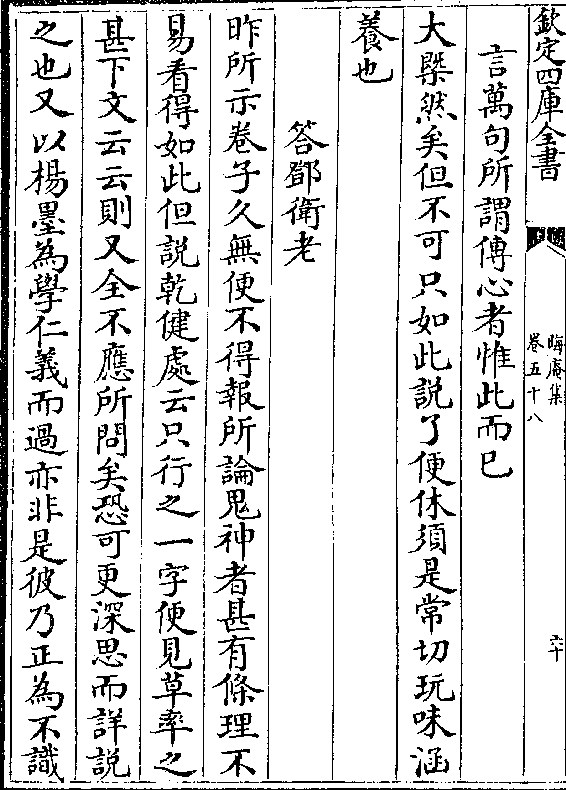 欽定四庫全書
晦庵集
卷五十八
六十
言萬句所謂傳心者惟此而已
大槩然矣但不可只如此説了便休須是常切玩味涵
養也
答鄧衛老
昨所示卷子久無便不得報所論鬼神者甚有條理不
易看得如此但説乾健處云只行之一字便見草率之
甚下文云云則又全不應所問矣恐可更深思而詳説
之也又以楊墨為學仁義而過亦非是彼乃正為不識